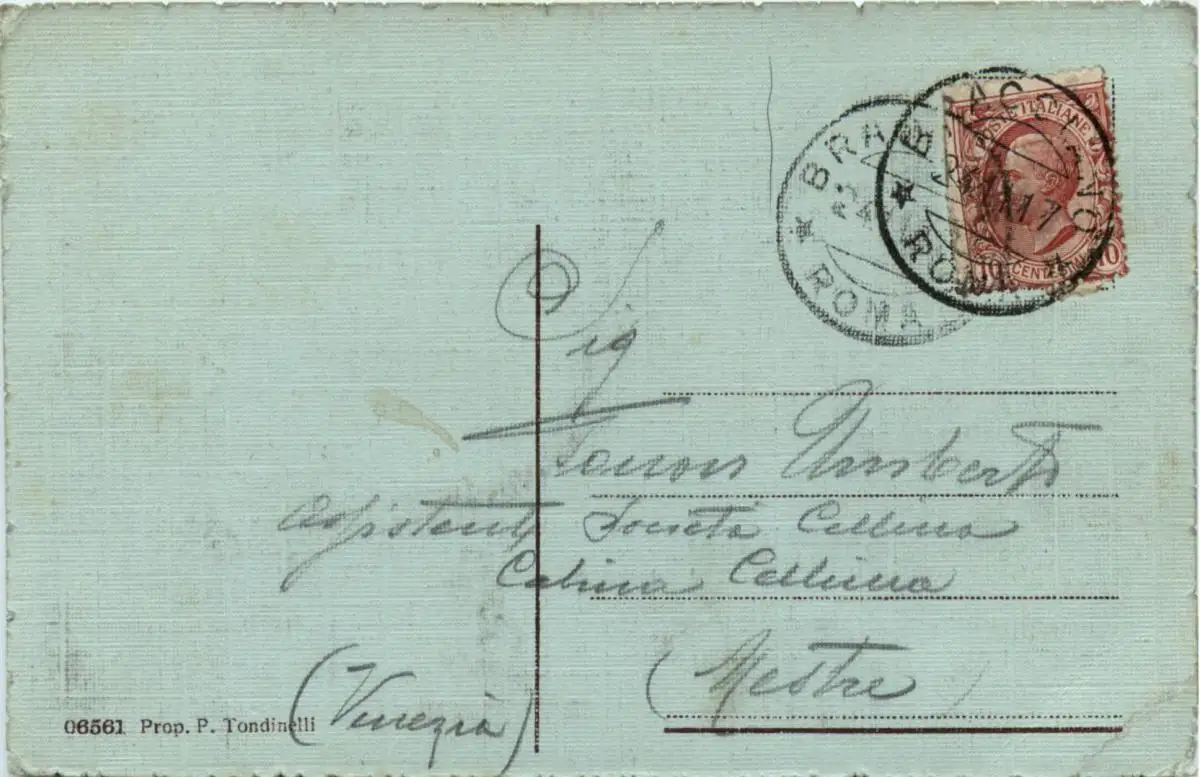 POSTE ITALIANE
10 CENTESIMI 10
BRACCIANO
ROMA
BRA
24
ROMA
Sig
Umberto
Assistente Società Cellina
Cabina Cellina
(Mestre)
(Venezia)
06561 Prop. P. Tondinelli